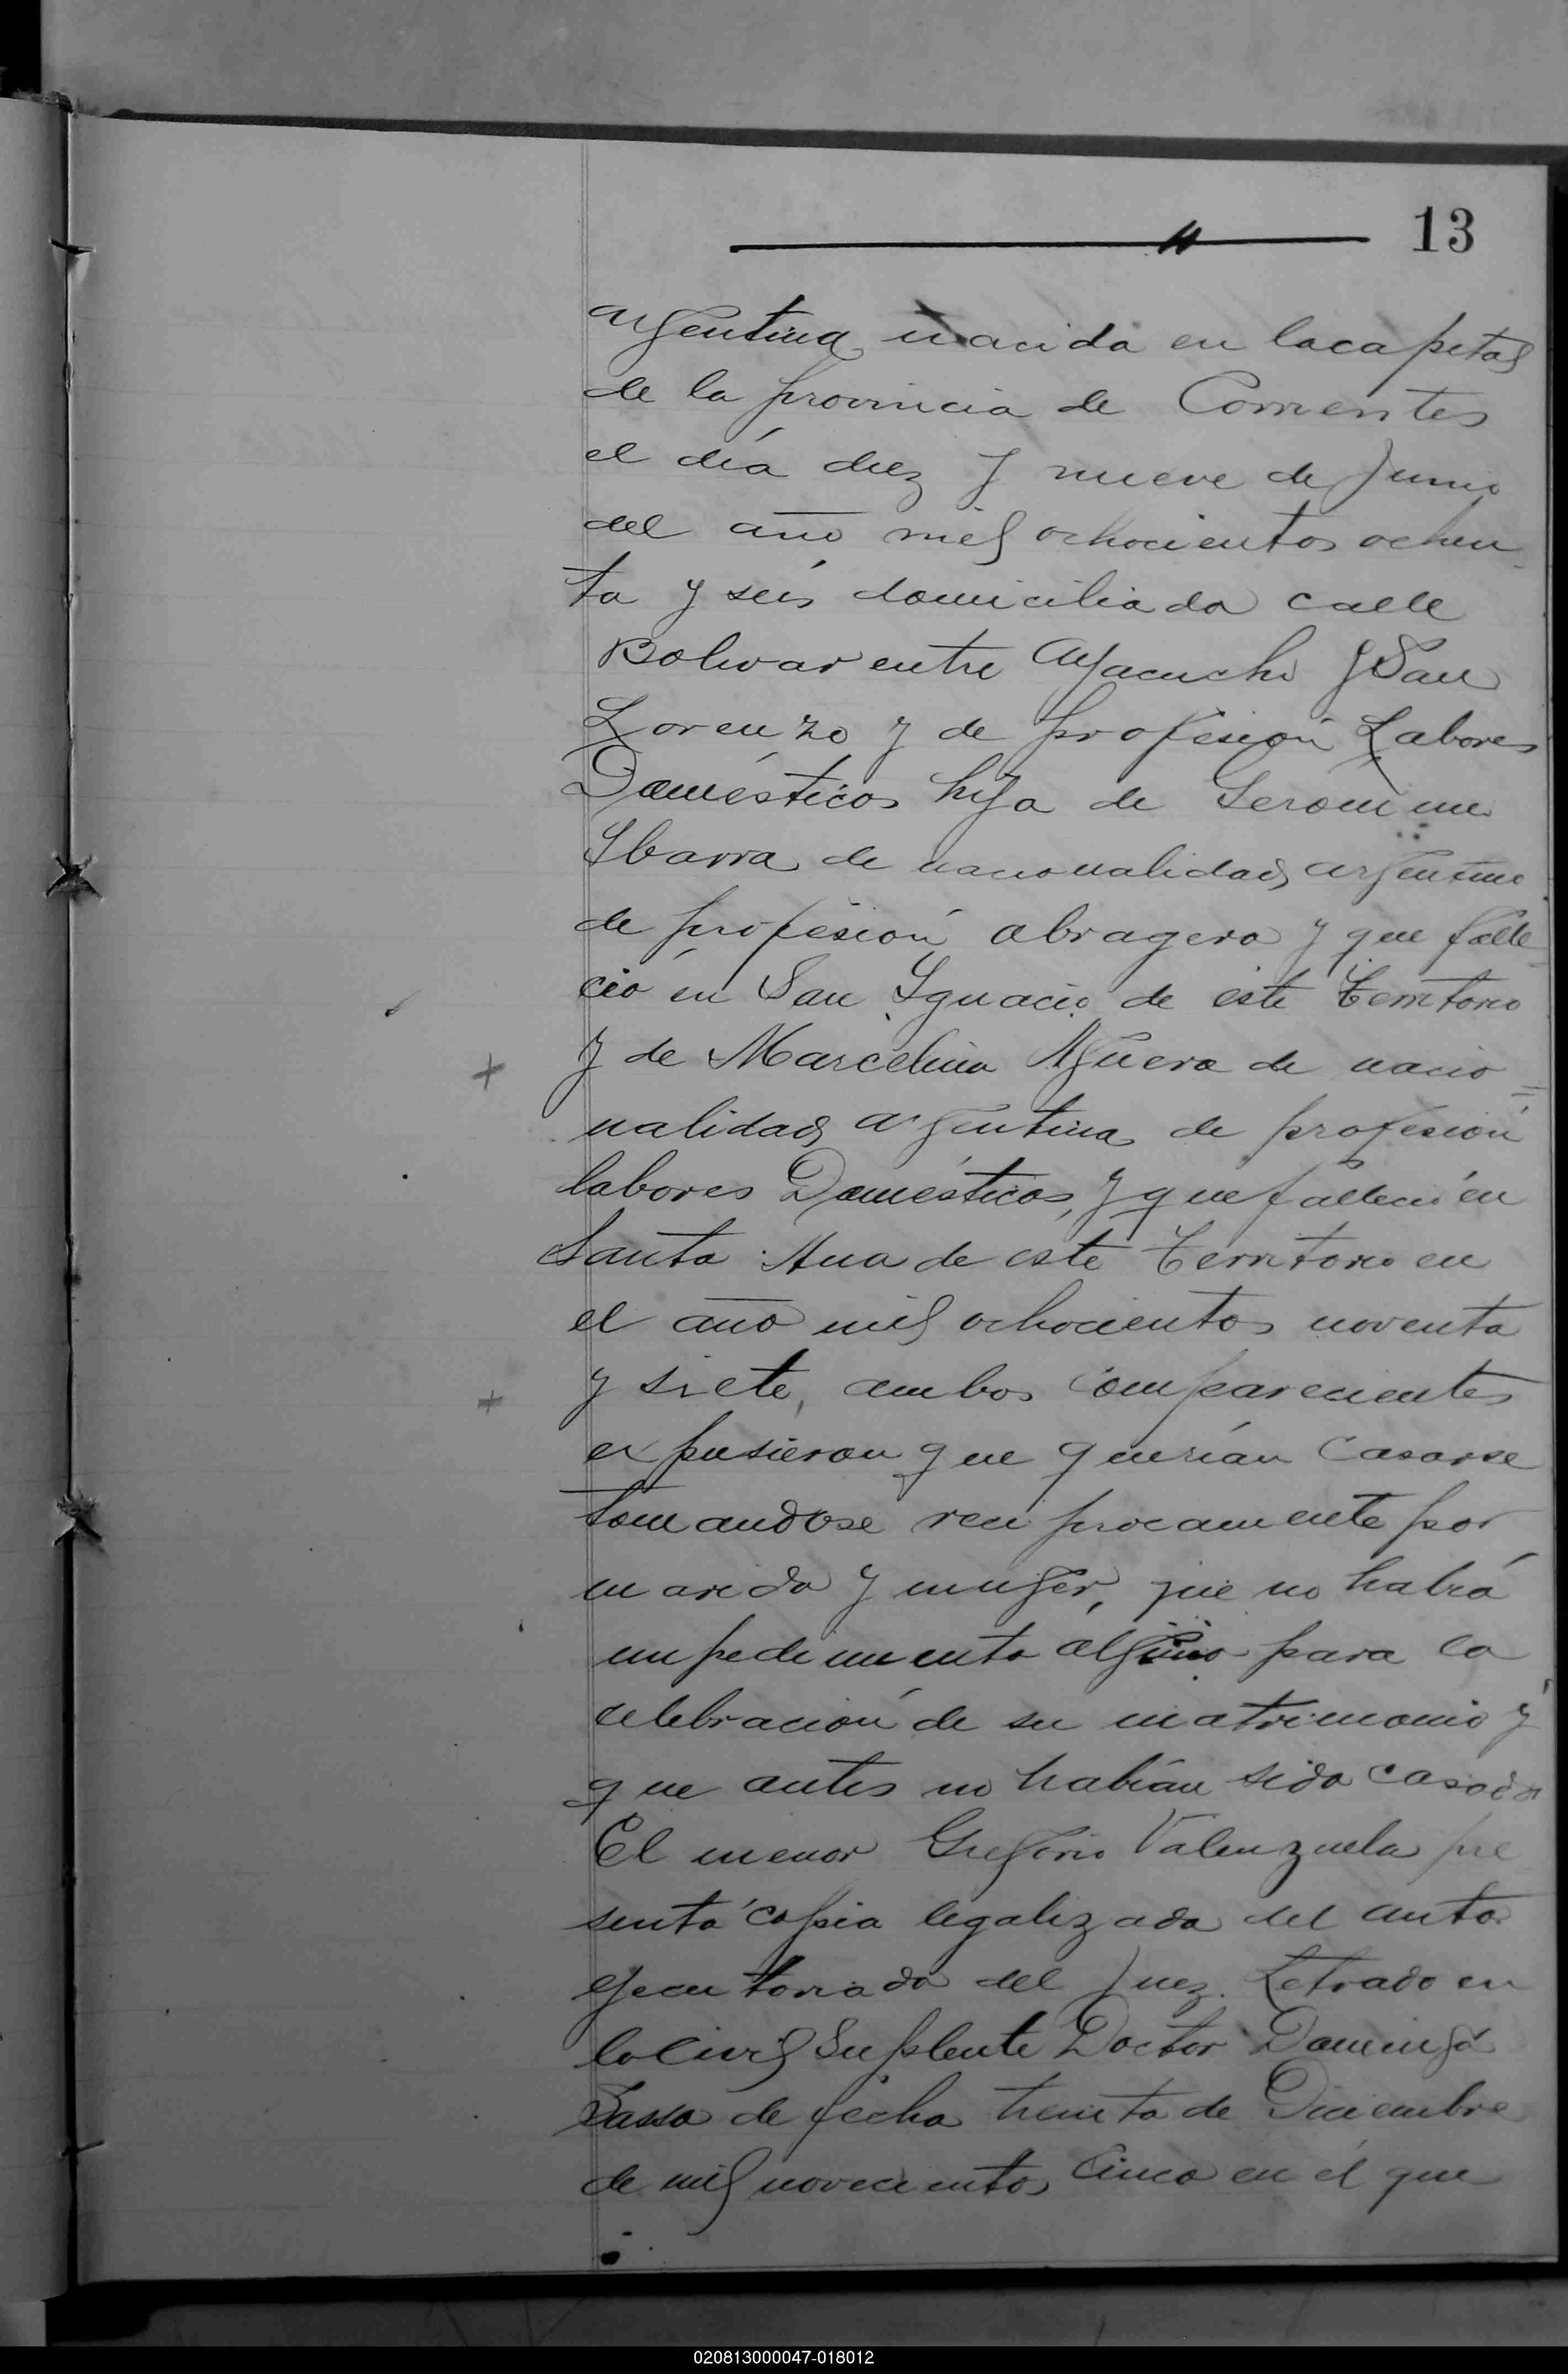 13
argentina nacida en la capital
de la provincia de Corrientes
el día diez y nueve de Junio
del año mil ochocientos ochen
ta y seis domiciliada calle
Bolivar entre Ayacucho y San
Lorenzo y de profesión Labores
Domésticos hija de Geronimo
Ybarra de nacionalidad argentino
de profesión obragero y que falle
ció en San Ygnacio de este Territorio
y de Marcelina Agüero de nacio=
nalidad argentina de profesión
labores Domésticos, y que falleció en
Santa Ana de este Territorio en
el año mil ochocientos noventa
y siete, ambos comparecientes
expusieron que querían casarse
tomandose reciprocamente por
marido y muger, que no había
impedimento alguno para la
celebración de su matrimonio y
que antes no habían sido casados
El menor Gregorio Valenzuela pre
sentó copia legalizada del auto
ejecutoriado del Juez Letrado en
lo Civil Suplente Doctor Domingo
Sasso de fecha treinta de Diciembre
de mil novecientos cinco en él que
020813000047-018012